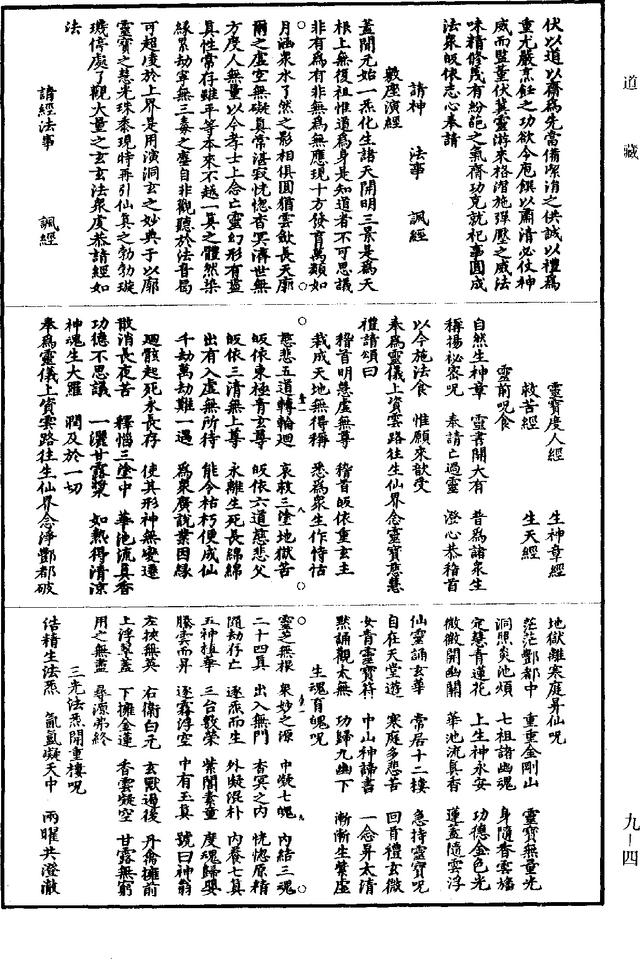 道藏
九-四
伏以道以齋為先當備潔涓之供誠以禮為
重尤嚴烹飪之功欲令庖饌以肅清必仗神
威而監董伏冀靈游來格施彈壓之威法
味精修茂有紛葩之氣齋功克就祀事圓成
法眾皈依志心奉請
請神　法事　諷經
敷座演經
蓋聞元始一炁化生諸天開明三景是為天
根上無復祖惟道為身是知道者不可思議
非有為有非無為無應現十方發育萬類如
月涵眾水了然之影相俱圓猶雲斂長天廓
爾之虛空無礙真常湛寂恍惚杳冥濟世無
方度人無量以今孝士上合亡靈幻形有盡
真性常存雖平等本來不越一真之體然染
緣累劫寧無三毒之塵自非觀聽於法音曷
可超凌於上界是用演洞玄之妙典于以廓
靈寶之慧光珠黍現時再引仙真之勃勃璇
璣停處了觀大量之玄玄法眾虔恭請經如
法
請經法事　諷經
靈寶度人經　生神章經
救苦經　生天經
靈前呪食
自然生神章　靈書開大有　昔為諸眾生
稱揚祕密呪　奉請亡過靈　澄心恭稽首
以今施法食　惟願來歆受
奉為靈儀上資雲路往生仙界念靈寶慈慧
禮請頌曰
稽首明慧虛無尊　稽首皈依重玄主
裁成天地無得稱　悉為眾生作恃怙
慈悲五道轉輪廻　哀救三塗地獄苦
皈依東極青玄尊　皈依六道慈悲父
皈依三清無上尊　永離生死長綿綿
出有入虛無所待　能令枯朽便成仙
千劫萬劫難一遇　為眾廣說業因緣
廻骸起死永長存　使其形神無變遷
散消長夜苦　釋惱三塗中　華池流真香
功德不思議　一灑甘露漿　如熱得清涼
神魂生大羅　潤及於一切
奉為靈儀上資雲路往生仙界念淨酆都破
地獄離寒庭昇仙呪
茫茫酆都中　重重金剛山　靈寶無量光
洞照炎池煩　七祖諸幽魂　身隨香雲旛
定慧青蓮花　上生神永安　功德金色光
微微開幽關　華池流真香　蓮蓋隨雲浮
仙靈誦玄華　常居十二樓　急持靈寶呪
自在天堂遊　寒庭多悲苦　回首禮玄微
女青靈寶符　中山神諦書　一念昇太清
默誦觀太無　功歸九幽下　漸漸生紫虛
生魂育魄呪
靈芝無根　眾妙之源　中凝七魄　內結三魂
二十四真　出入無門　杳冥之內　恍惚原精
隨劫存亡　逐炁而生　外凝混朴　內養七真
五神植華　三台散榮　紫閣素童　度魂歸嬰
騰雲而昇　逐霧浮空　中有玉真　號曰神翁
左挾無英　右衛白元　玄獸遏後　丹禽擁前
上浮翠蓋　下擁金蓮　香雲凝空　甘露無窮
用之無盡　尋源弟終
三光法炁開重樓呪
浩精生法炁　氤氳凝天中　兩曜共澄澈